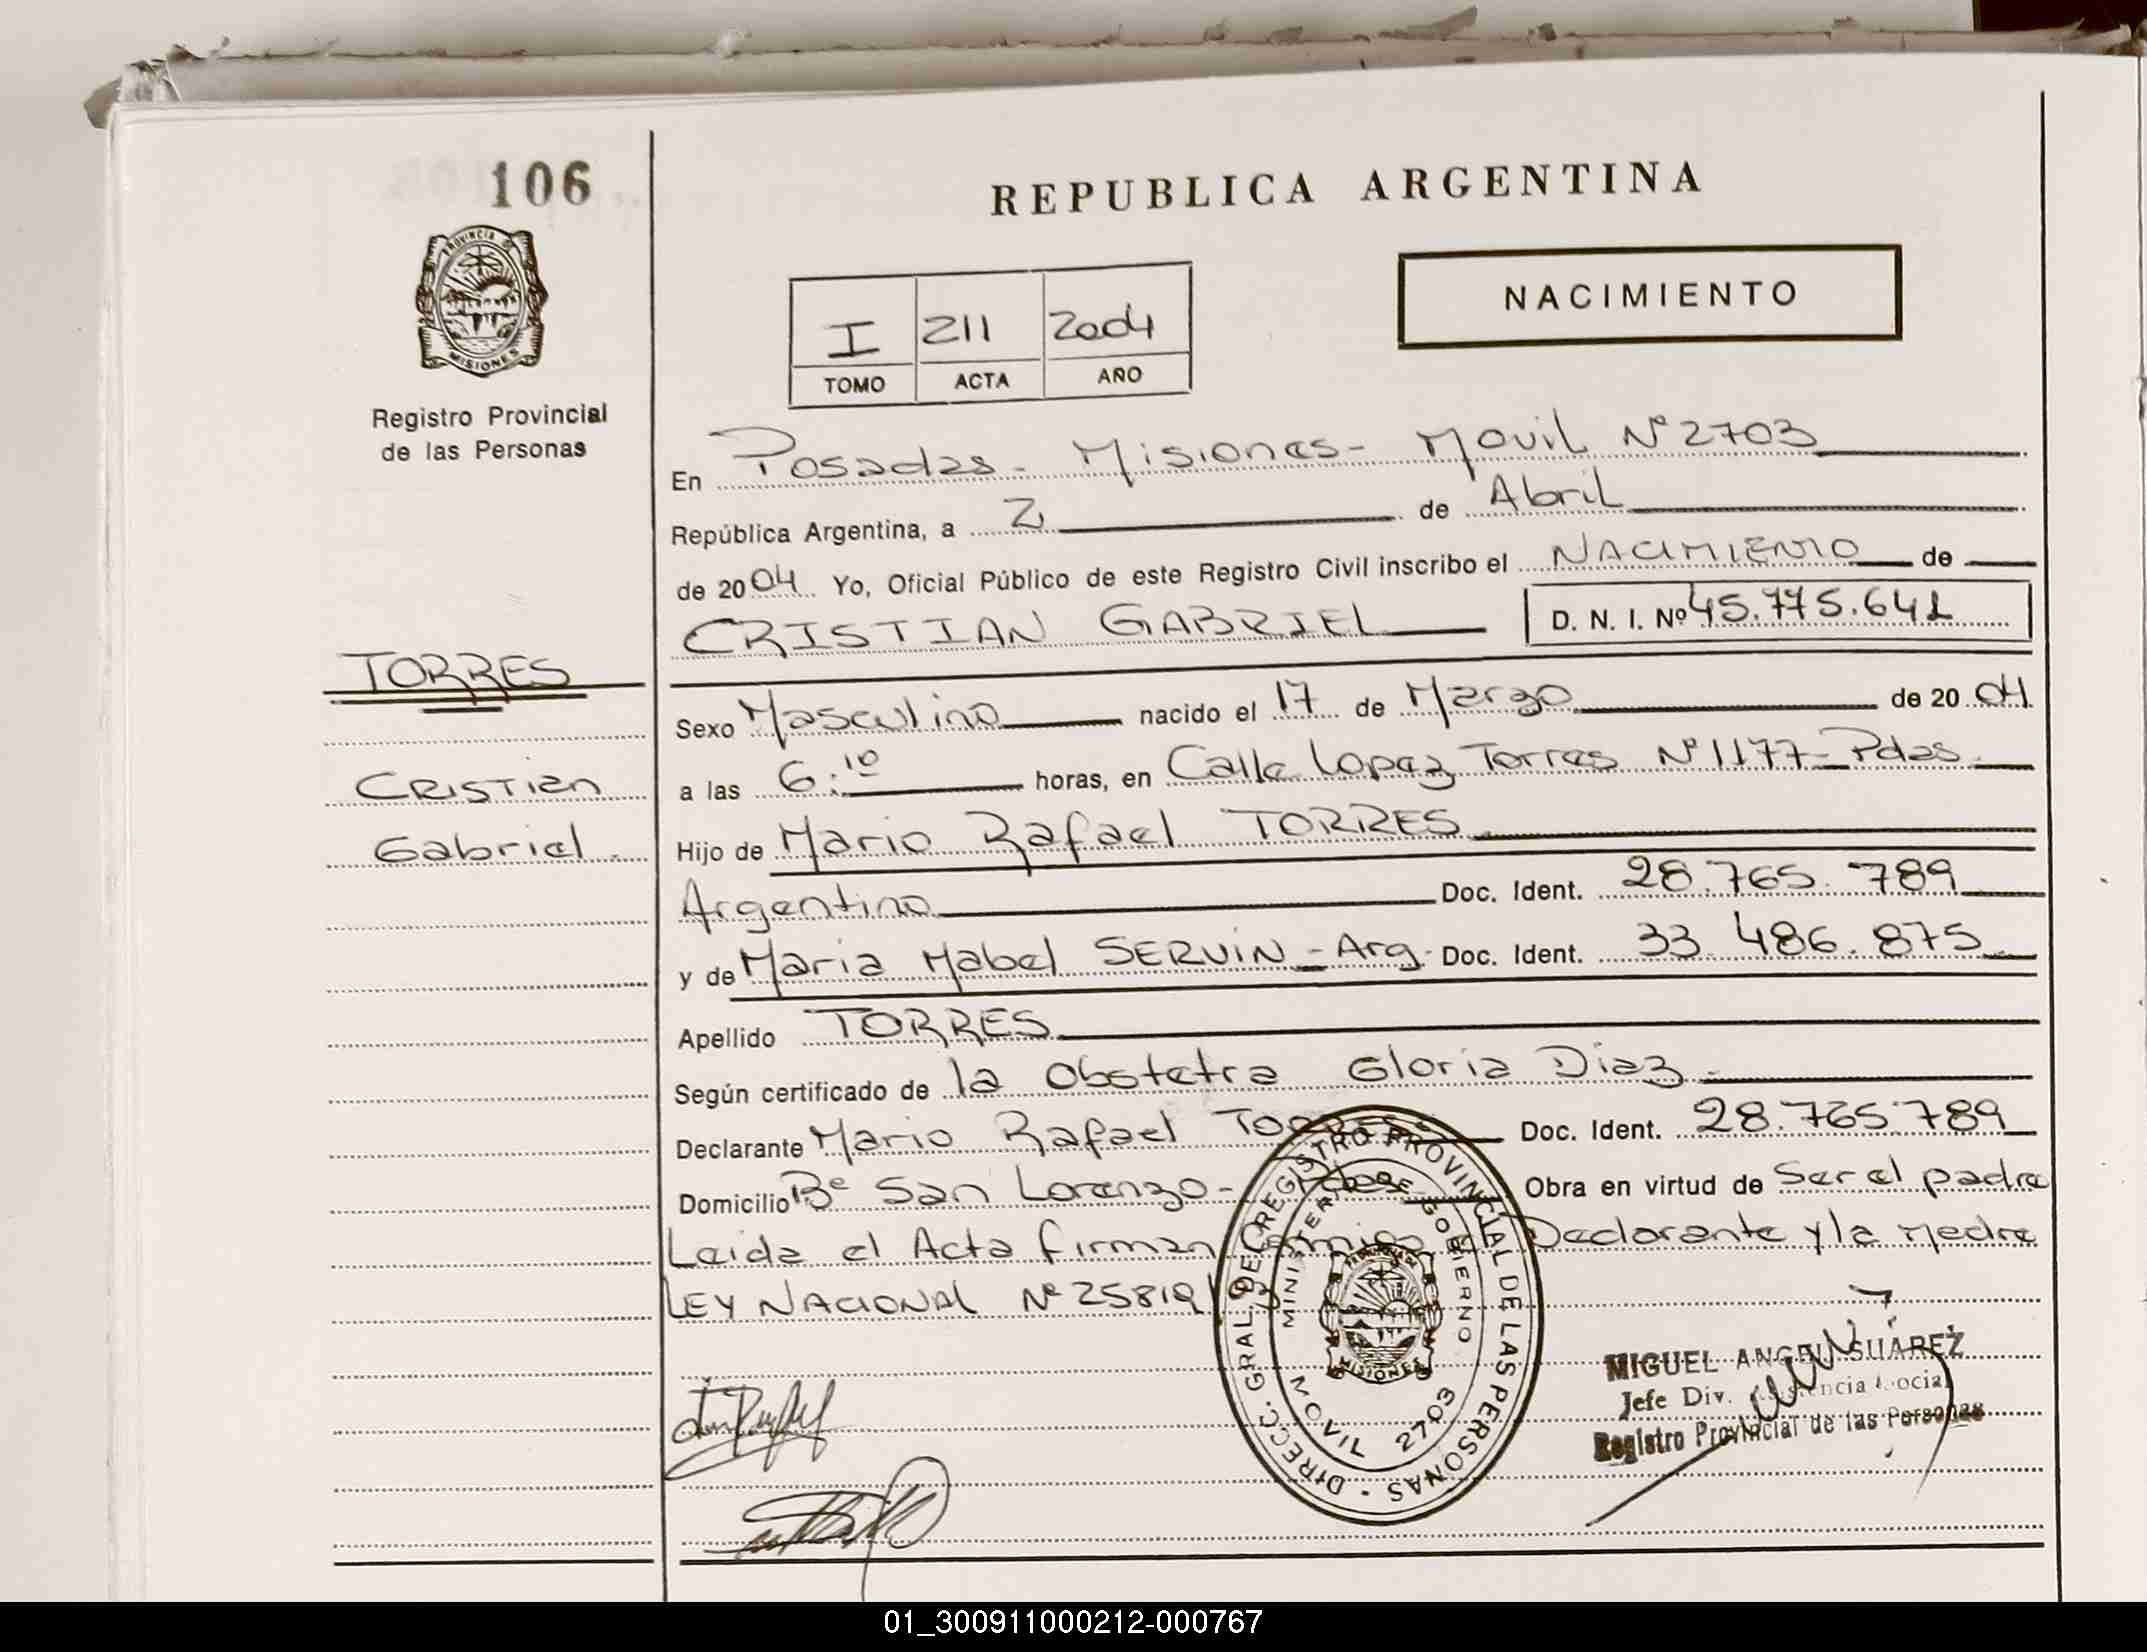 106
PROVINCIA DE
MISIONES
Registro Provincial
de las Personas
REPUBLICA ARGENTINA
NACIMIENTO
I 211 2004
TOMO ACTA AÑO
En Posadas - Misiones - Movil Nº 2703
República Argentina, a 2 de Abril
de 2004 Yo, Oficial Público de este Registro Civil inscribo el NACIMIENTO de
CRISTIAN GABRIEL D. N. I. Nº 45.775.641
TORRES
Cristian
Gabriel.
Sexo Masculino nacido el 17 de Marzo de 2004
a las 6:10 horas, en Calle Lopez Torres Nº 1177 - Pdas
Hijo de Mario Rafael TORRES
Argentino Doc. Ident. 28.765.789
y de Maria Mabel SERVIN - Arg. Doc. Ident. 33.486.875
Apellido TORRES
Según certificado de la Obstetra Gloria Diaz.
Declarante Mario Rafael TORRES Doc. Ident. 28.765.789
Domicilio Bº San Lorenzo - Obra en virtud de Ser el padre
Leida el Acta firman Conmigo el Declarante y la Madre
LEY NACIONAL Nº 25819
DIRECC. GRAL. DEL REGISTRO PROVINCIAL DE LAS PERSONAS -
MINISTERIO DE GOBIERNO
PROVINCIA DE
MISIONES
MOVIL 2703
MIGUEL ANGEL SUÁREZ
Jefe Div. Asistencia Social
Registro Provincial de las Personas
01_300911000212-000767